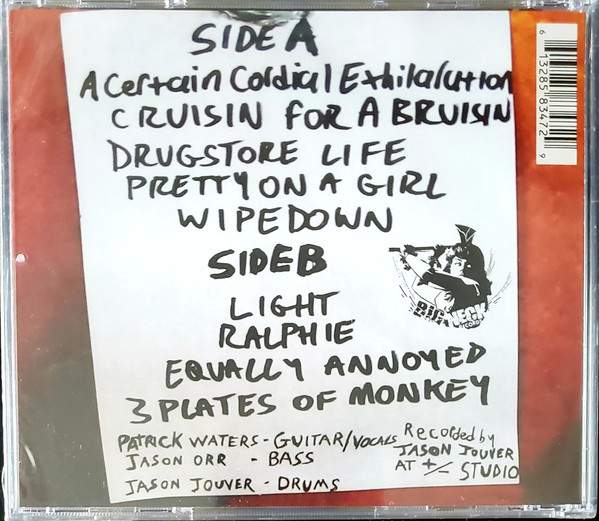 SIDE A
A Certain Cordial Exhilaration
CRUISIN FOR A BRUISIN
DRUGSTORE LIFE
PRETTY ON A GIRL
WIPEDOWN
SIDE B
LIGHT
RALPHIE
EQUALLY ANNOYED
3 PLATES OF MONKEY
PATRICK WATERS - GUITAR/VOCALS
JASON ORR - BASS
JASON JOUVER - DRUMS
Recorded by
JASON JOUVER
AT +/- STUDIO
BIG NECK
RECORDS
6 13285 83472 9